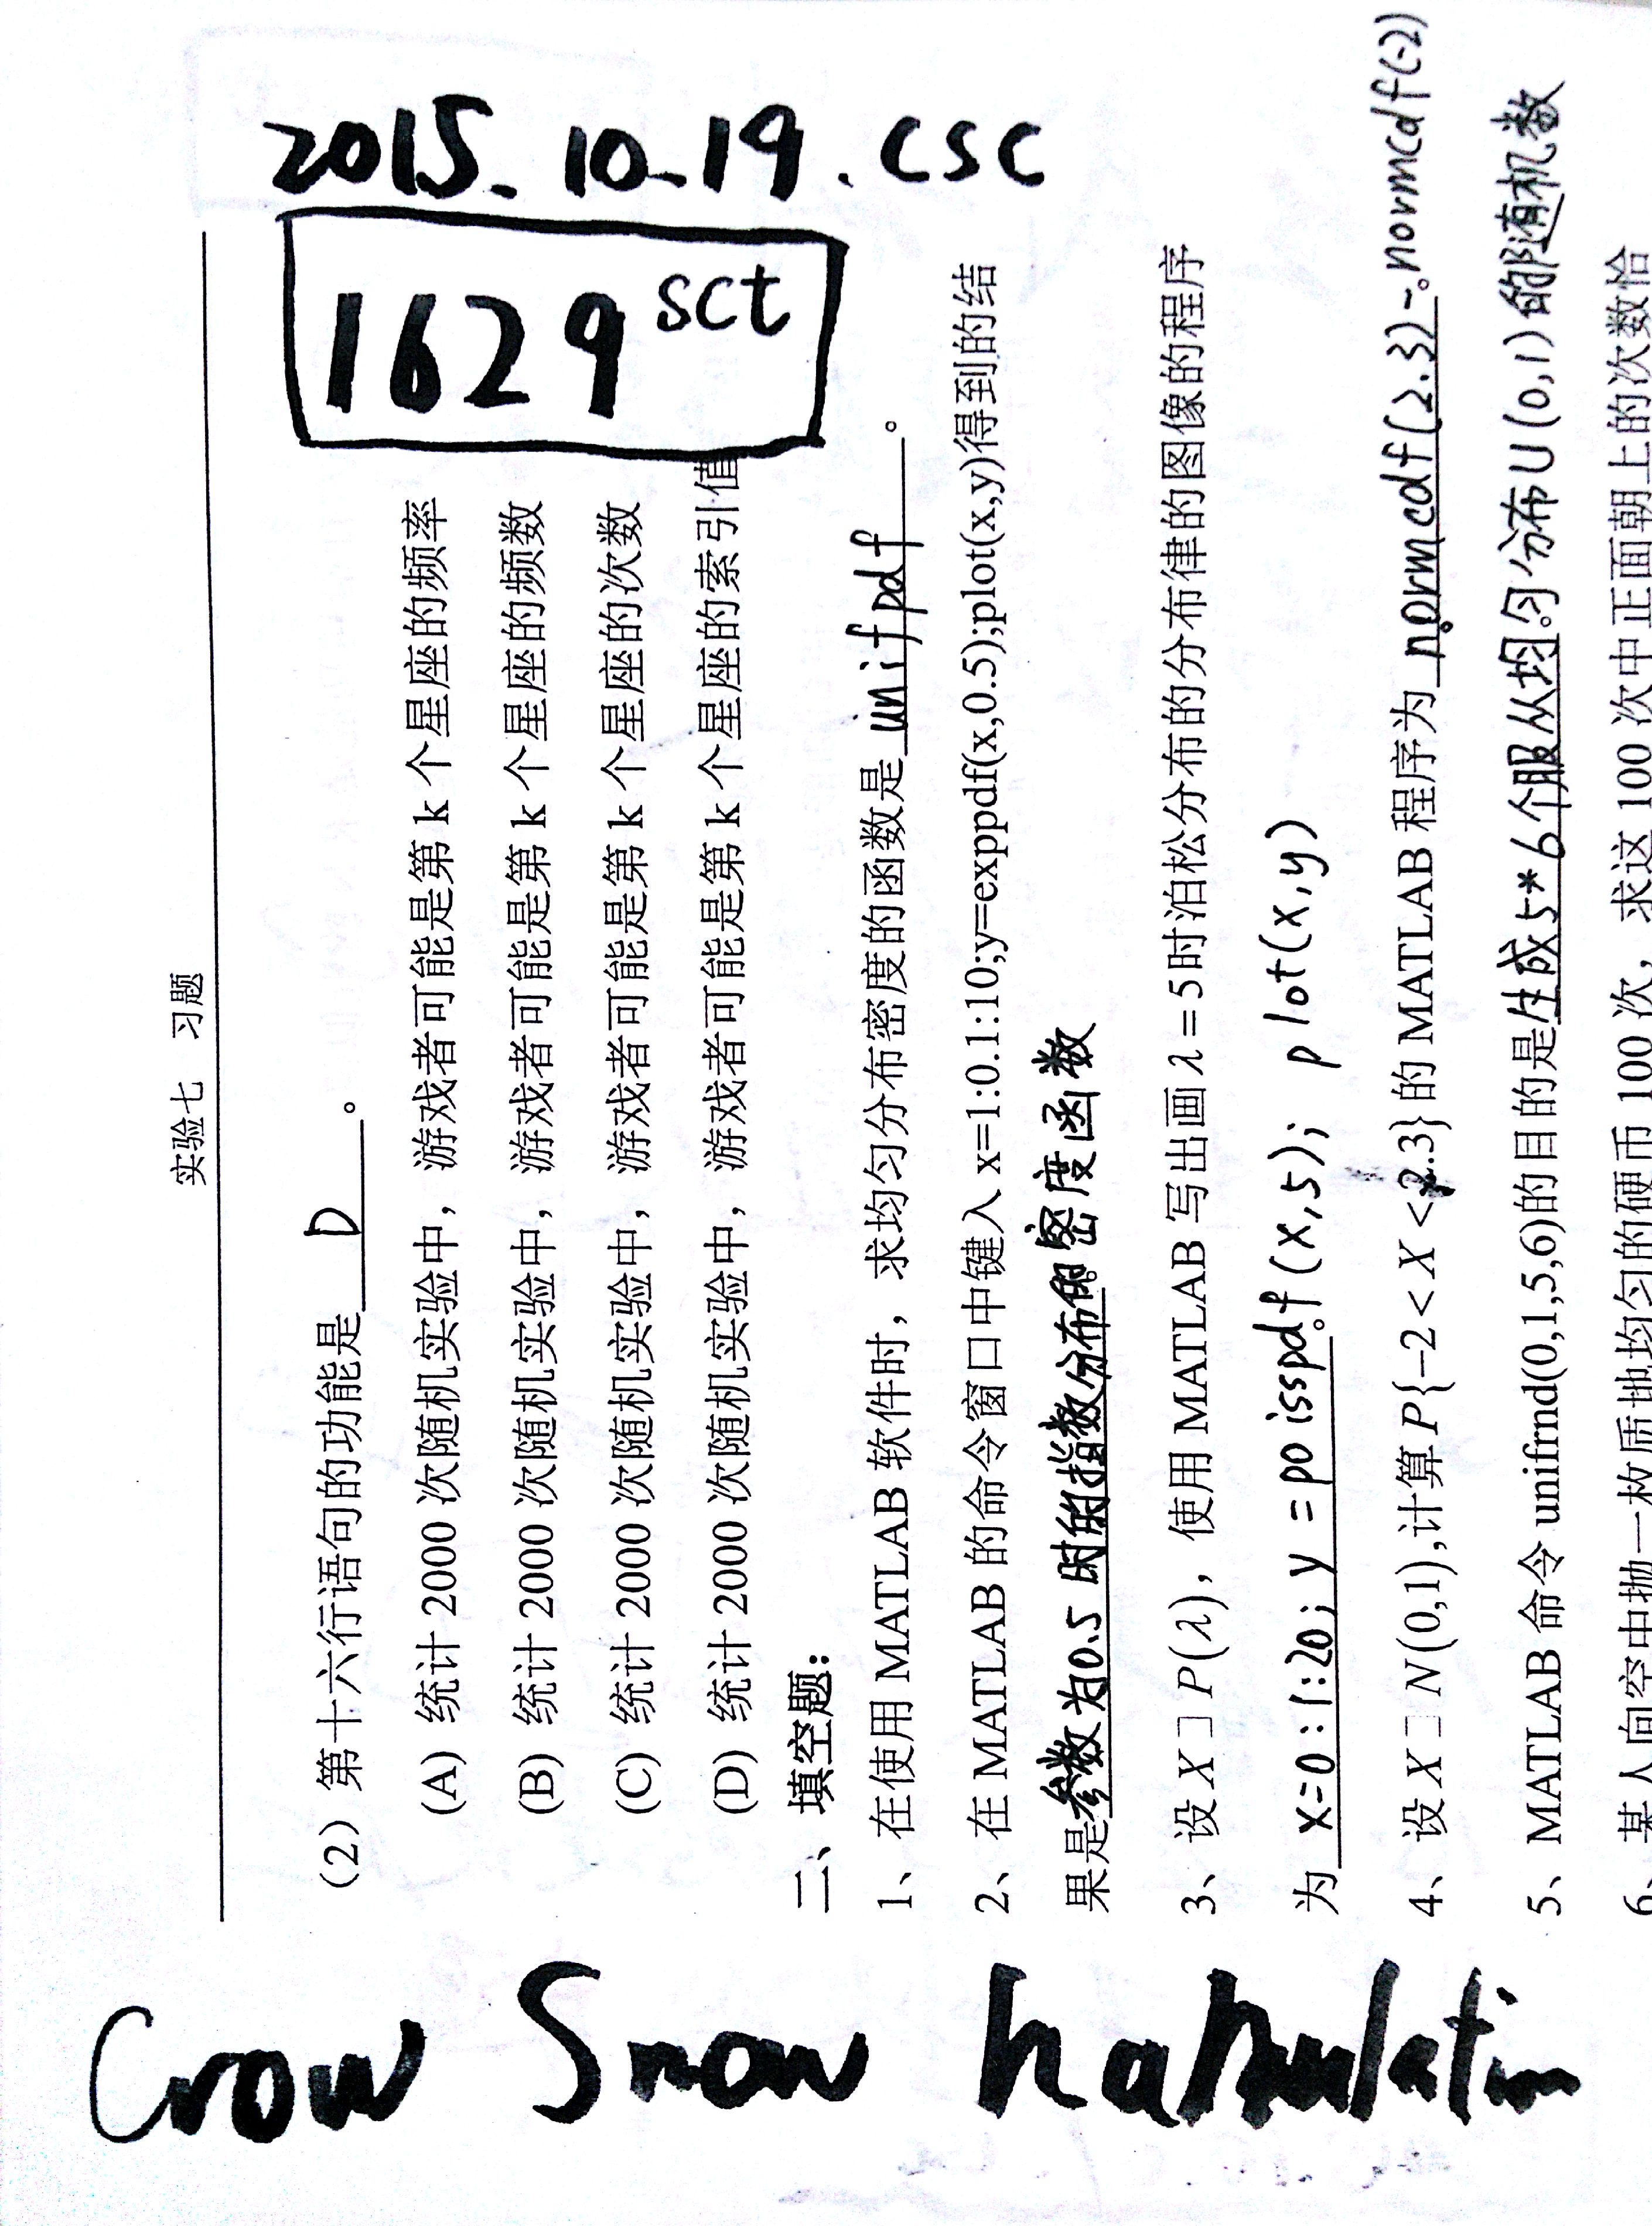 2015.10.19.CSC
1629 sct
实验七 习题
（2）第十六行语句的功能是 D 。
(A) 统计 2000 次随机实验中，游戏者可能是第 k 个星座的频率
(B) 统计 2000 次随机实验中，游戏者可能是第 k 个星座的频数
(C) 统计 2000 次随机实验中，游戏者可能是第 k 个星座的次数
(D) 统计 2000 次随机实验中，游戏者可能是第 k 个星座的索引值
二、填空题：
1、在使用 MATLAB 软件时，求均匀分布密度的函数是 unifpdf 。
2、在 MATLAB 的命令窗口中键入 x=1:0.1:10;y=exppdf(x,0.5);plot(x,y)得到的结
果是参数为0.5 时的指数分布的密度函数
3、设 X□P(λ)，使用 MATLAB 写出画 λ=5时泊松分布的分布律的图像的程序
为 x=0:1:20; y=poisspdf(x,5); plot(x,y)
4、设 X□N(0,1),计算 P{-2<X<2.3}的 MATLAB 程序为 normcdf(2.3)-normcdf(-2)
5、MATLAB 命令 unifrnd(0,1,5,6)的目的是生成5*6个服从均匀分布U(0,1)的随机数
6、某人向空中抛一枚质地均匀的硬币 100 次，求这 100 次中正面朝上的次数恰
Crow Snow